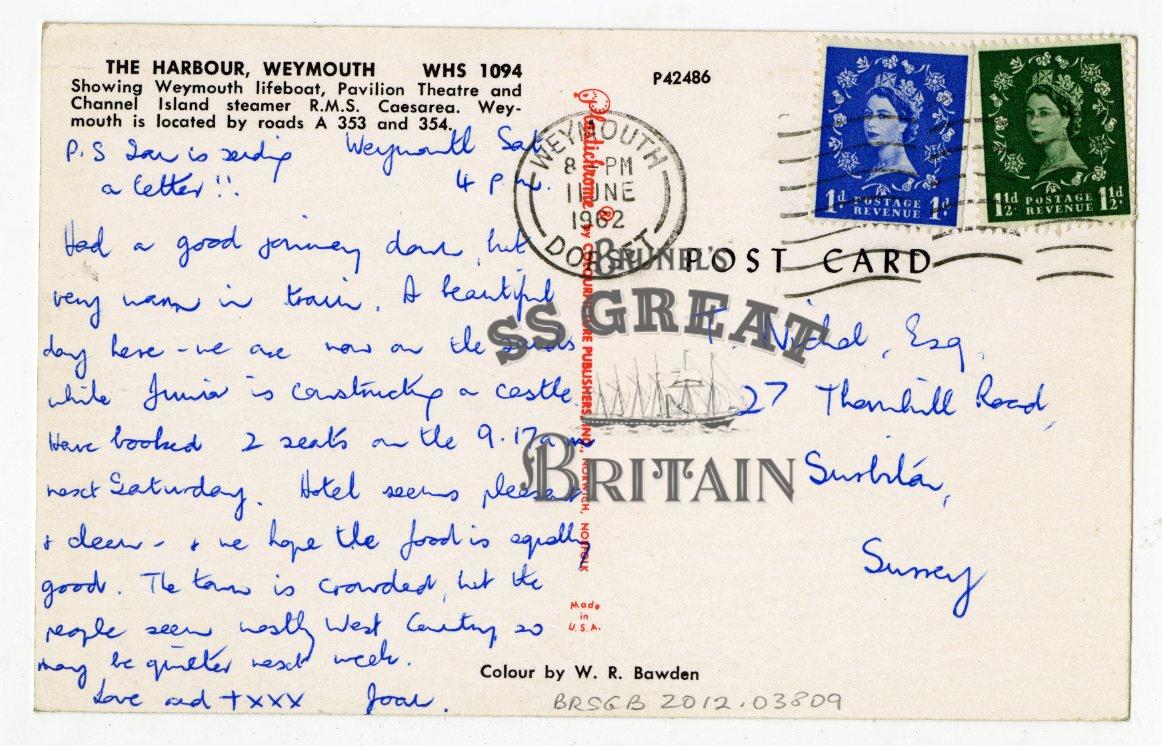 THE HARBOUR, WEYMOUTH WHS 1094
Showing Weymouth lifeboat, Pavilion Theatre and
Channel Island steamer R.M.S. Caesarea. Wey-
mouth is located by roads A 353 and 354.
P.S Ian is sending
a letter!!
Weymouth Sat
4 p.m.
Had a good journey down, but
very warm in train. A beautiful
day here - we are now on the sands
while Junior is constructing a castle.
Have booked 2 seats on the 9.17am
next Saturday. Hotel seems pleasant
& clean - & we hope the food is equally
good. The town is crowded, but the
people seem mostly West Country, so
may be quieter next week.
Love and +xxx Joan.
Plastichrome ® by COLOURPICTURE PUBLISHERS, INC., NORWICH, NORFOLK
Made
in
U.S.A.
P42486
WEYMOUTH
8 - PM
1 JUNE
1962
DORSET
1d POSTAGE 1d
REVENUE
1½d POSTAGE 1½d
REVENUE
POST CARD
Nichol, Esq.
27 Thornhill Road,
Surbiton,
Surrey
BRUNEL'S
SS GREAT
BRITAIN
Colour by W. R. Bawden
BRSGB 2012.03809